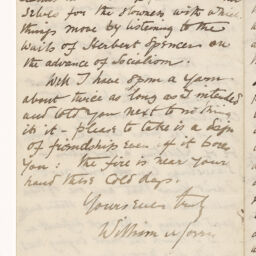 selves for the slowness with which
things move by listening to the
wails of Herbert Spencer on
the advance of Socialism.
Well I have spun a yarn
about twice as long as I intended
and told you next to nothing
in it - please to take is a sign
of friendship even if it bores
you: the fire is near your
hand these cold days.
Yours ever truly
William Morris